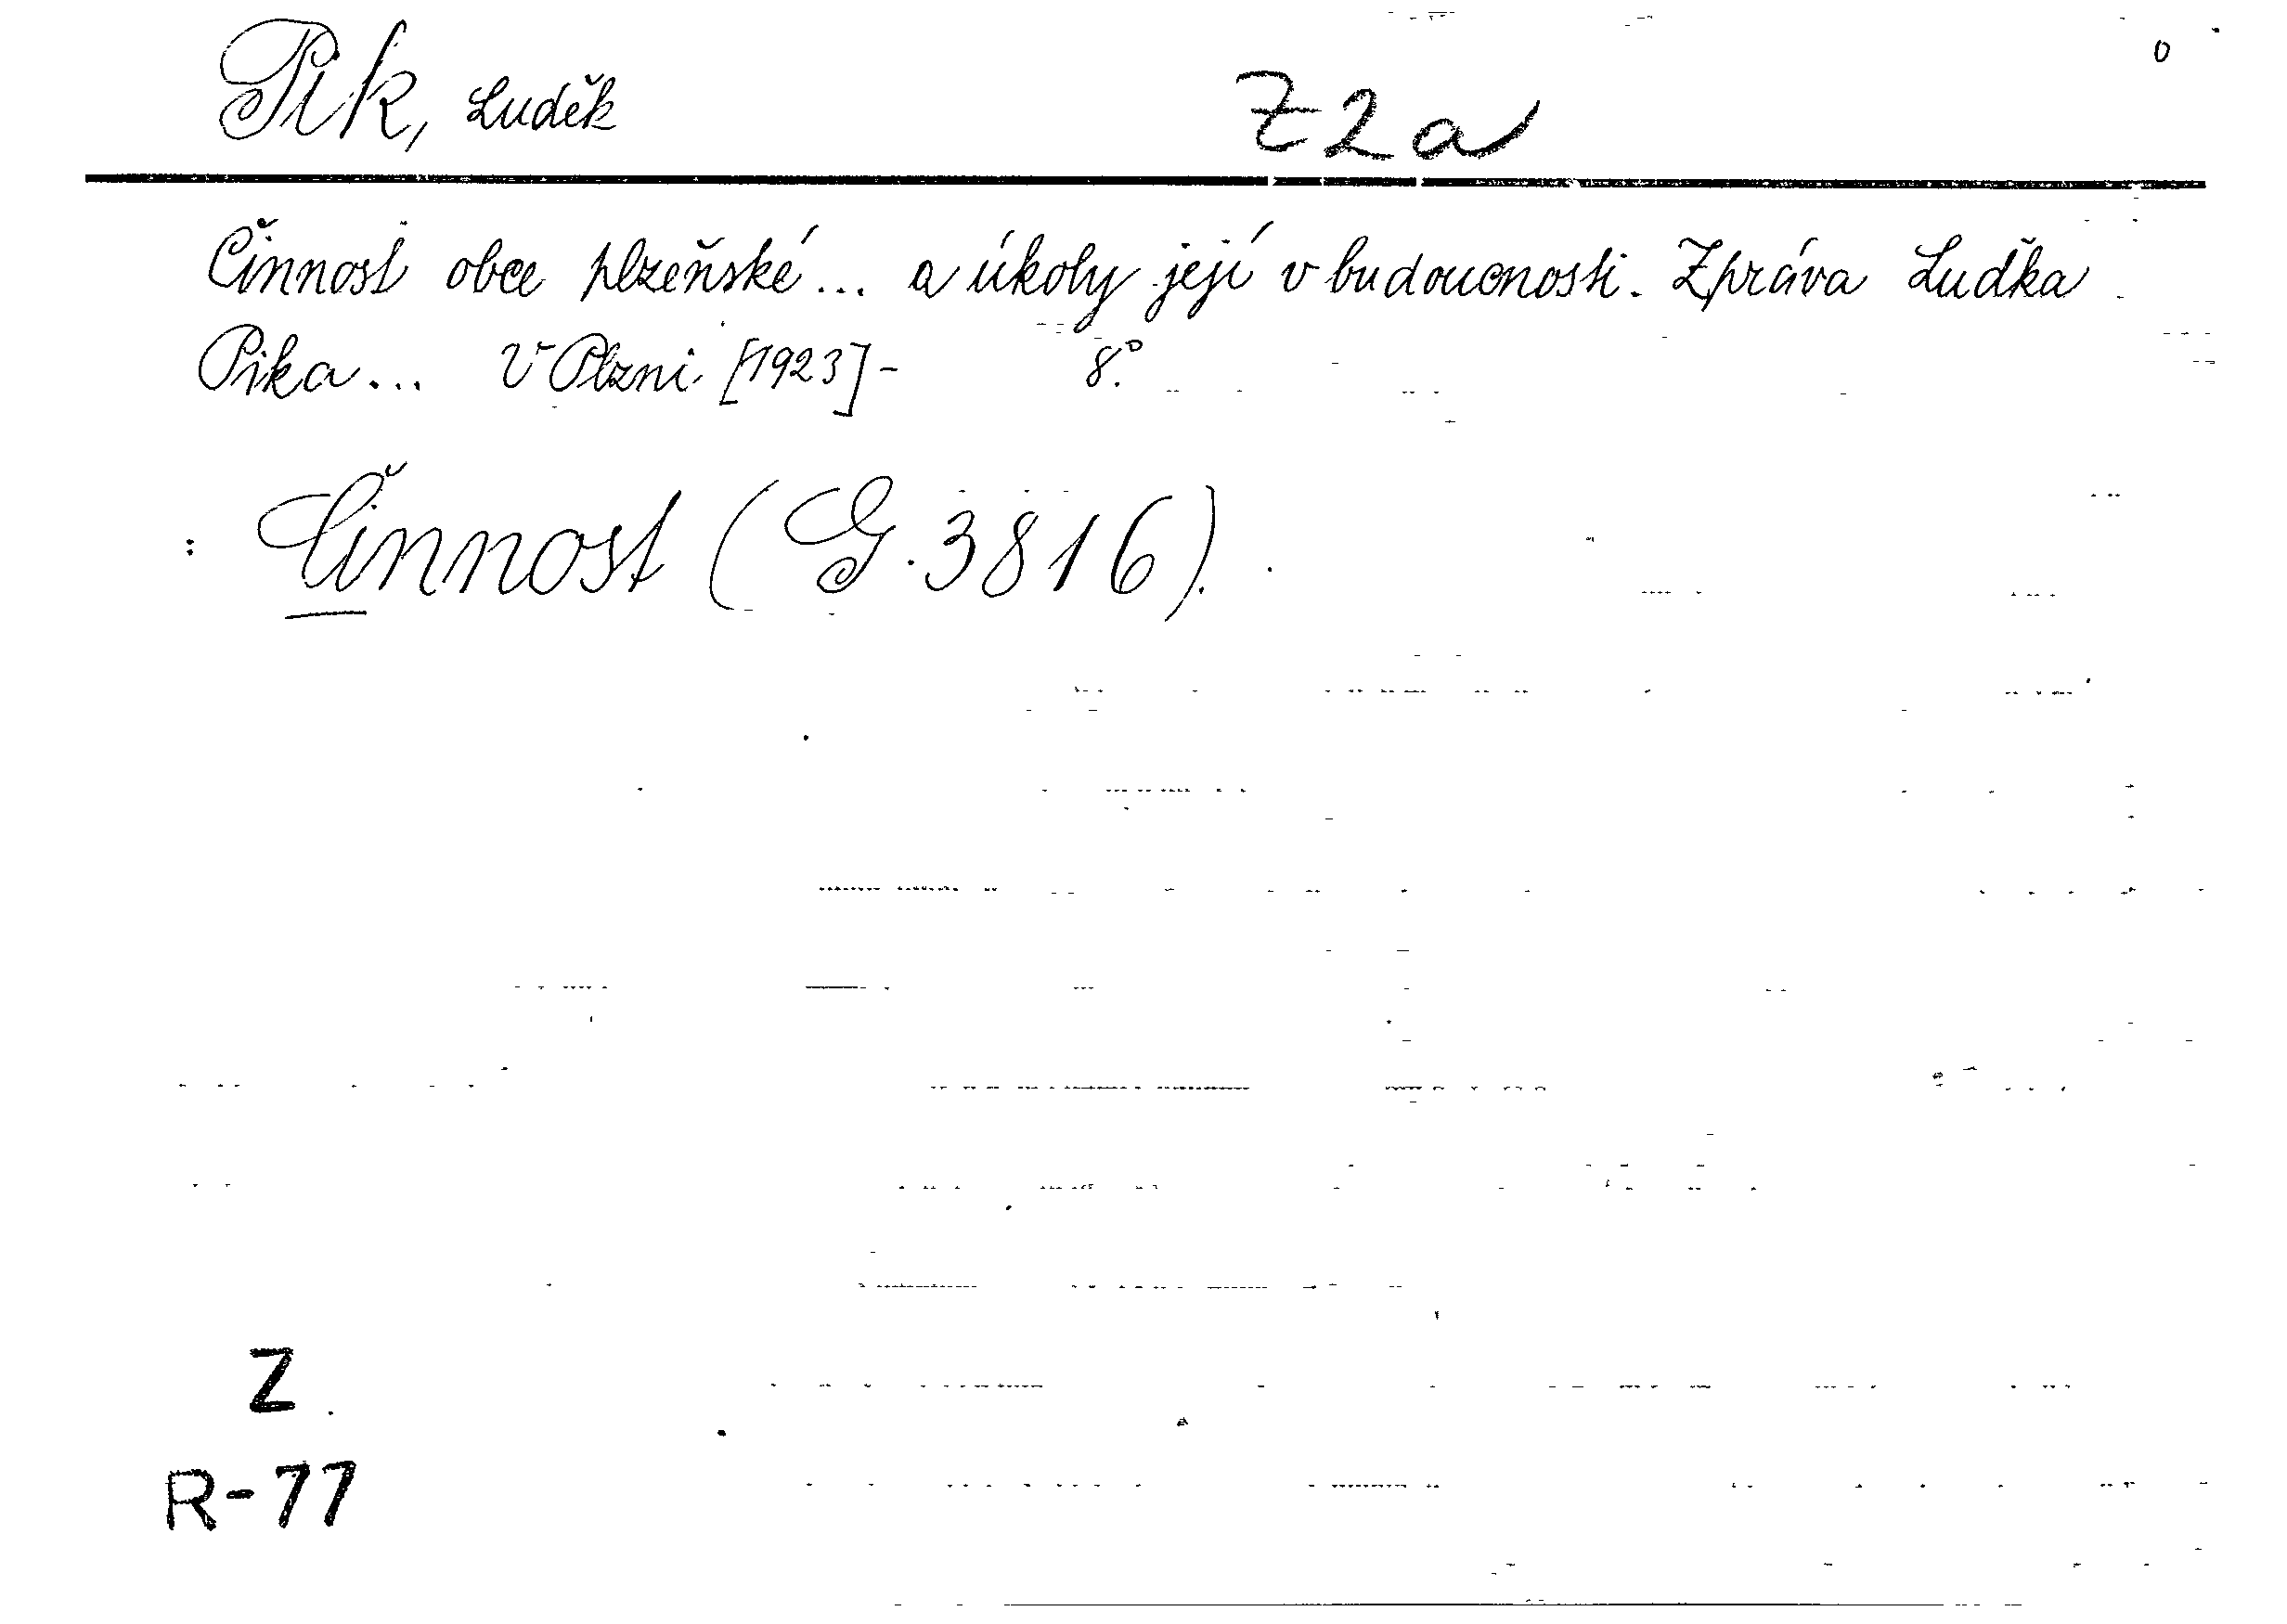 Pik, Luděk Z2a 0
Činnost obce plzeňské... a úkoly její v budoucnosti. Zpráva Luďka
Pika... V Plzni [1923]- 8°.
: Činnost (G.3816).
Z
R-77